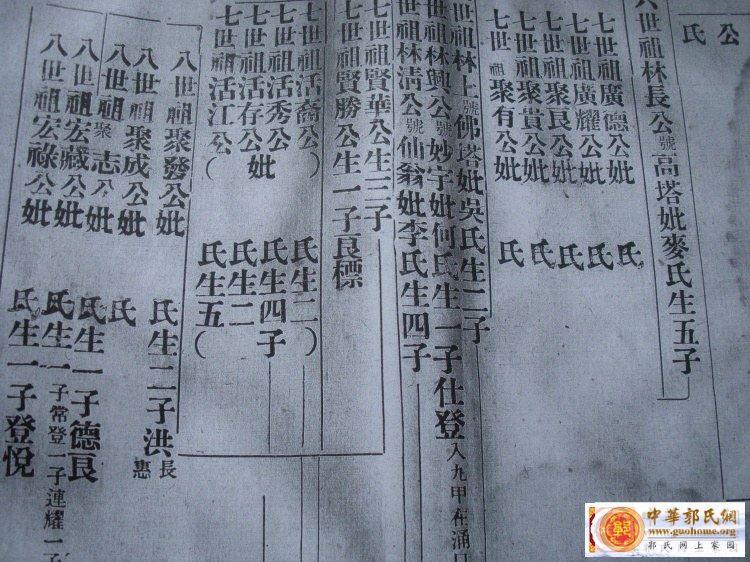 公
氏
世祖林長公號高塔妣麥氏生五子
七世祖廣德公妣 氏
七世祖廣耀公妣 氏
七世祖聚良公妣 氏
七世祖聚貴公妣 氏
七世祖聚有公妣 氏
世祖林上號佛塔妣吳氏生二子
世祖林興公號妙宇妣何氏生一子仕登入九甲在涌
世祖林淸公號仙翁妣李氏生四子
七世祖賢華公生三子
七世祖賢勝公生一子良標
七世祖活裔公( 氏生二)
七世祖活秀公妣 氏生四子
七世祖活存公妣 氏生二
七世祖活江公( 氏生五(
八世祖聚發公妣 氏生二子洪長惠
八世祖聚成公妣 氏
八世祖聚志公妣 氏生一子德良
八世祖宏藏公妣 氏生一子常登一子連耀一子
八世祖宏祿公妣 氏生一子登悅
中華郭氏網
www.guohome.org
郭氏网上家园